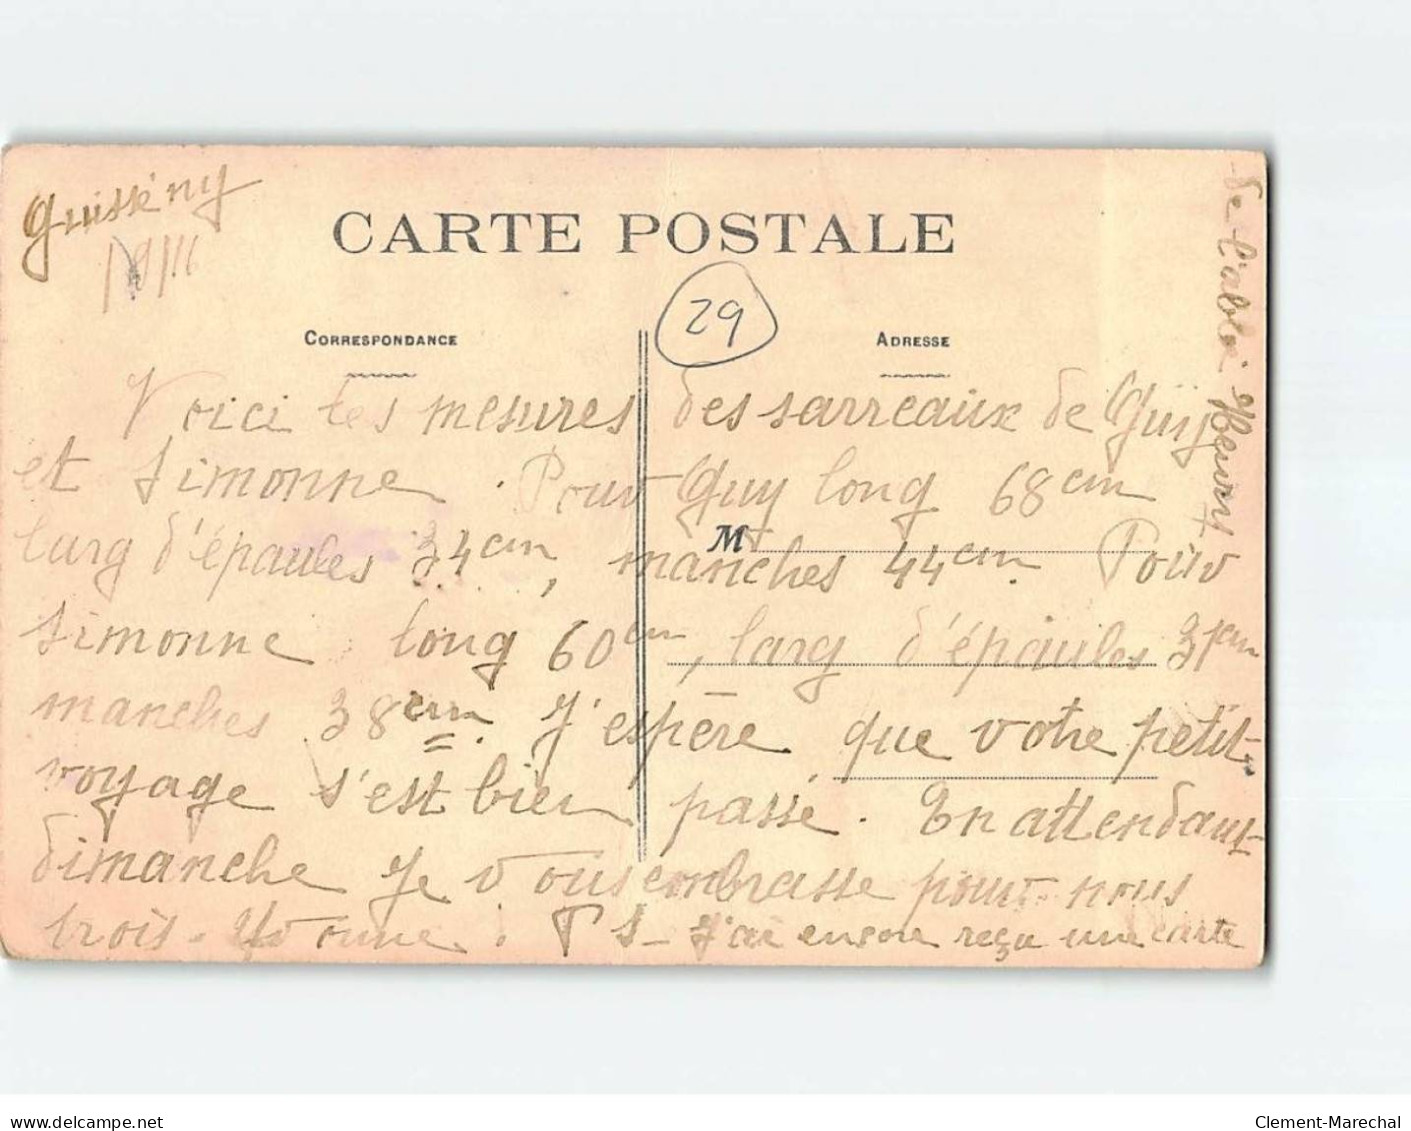 Guissény
CARTE POSTALE
29
CORRESPONDANCE
ADRESSE
Voici les mesures des sarreaux de Guy
et Simonne. Pour Guy long 68cm
M
larg d'épaules 34cm, manches 44cm. Pour
Simonne long 60cm, larg d'épaules 31cm
manches 38cm. J'espère que votre petit
voyage s'est bien passé. En attendant
dimanche Je vous embrasse pour nous
trois. Yvonne. PS_ J'ai encore reçu une carte
de l'abbé Henry
www.delcampe.net
Clement-Marechal